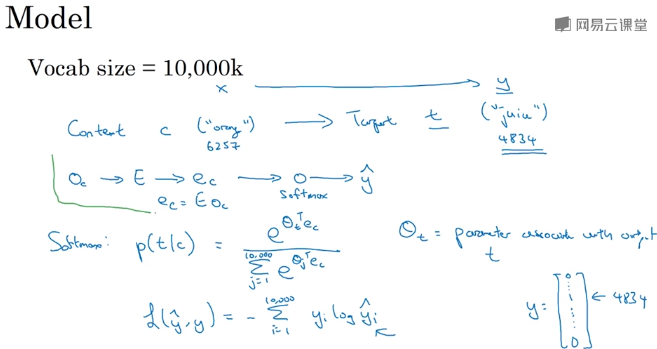 Model
网易云课堂
Vocab size = 10,000k
x → y
Content c ("orange") → Target t ("juice")
6257 4834
O_c → E → e_c → o → ŷ
softmax
e_c = E O_c
Softmax: p(t|c) = e^{θ_t^T e_c} / Σ_{j=1}^{10,000} e^{θ_j^T e_c}
θ_t = parameter associated with output t
ℒ(ŷ, y) = - Σ_{i=1}^{10,000} y_i log ŷ_i
y = [0 ⋮ 1 ⋮ 0] ← 4834